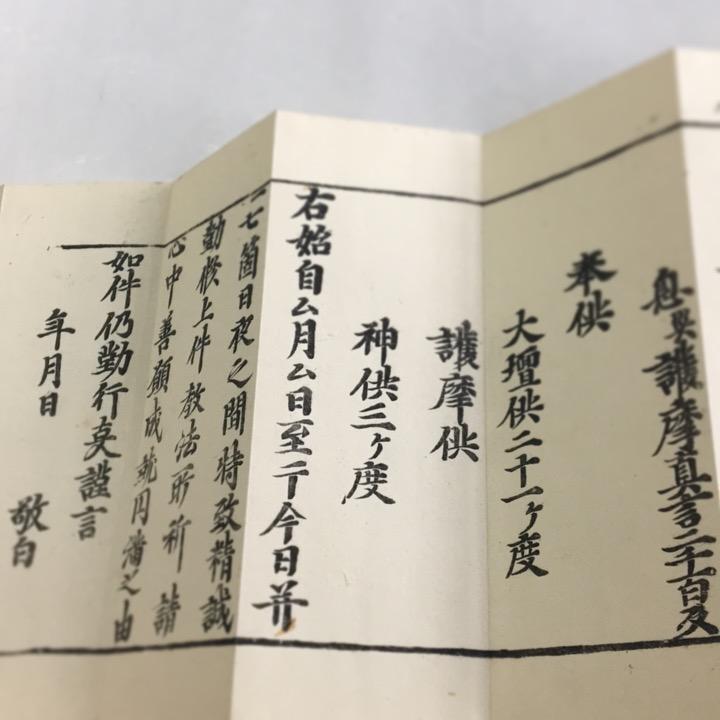 護摩真言二千百反
奉供
大壇供二十一ヶ度
護摩供
神供三ヶ度
右始自ム月ム日至于今日并
二七箇日夜之間特致精誠
勤修上件教法所祈請
心中善願成就円満之由
如件仍勤行支謹言
年月日
敬白